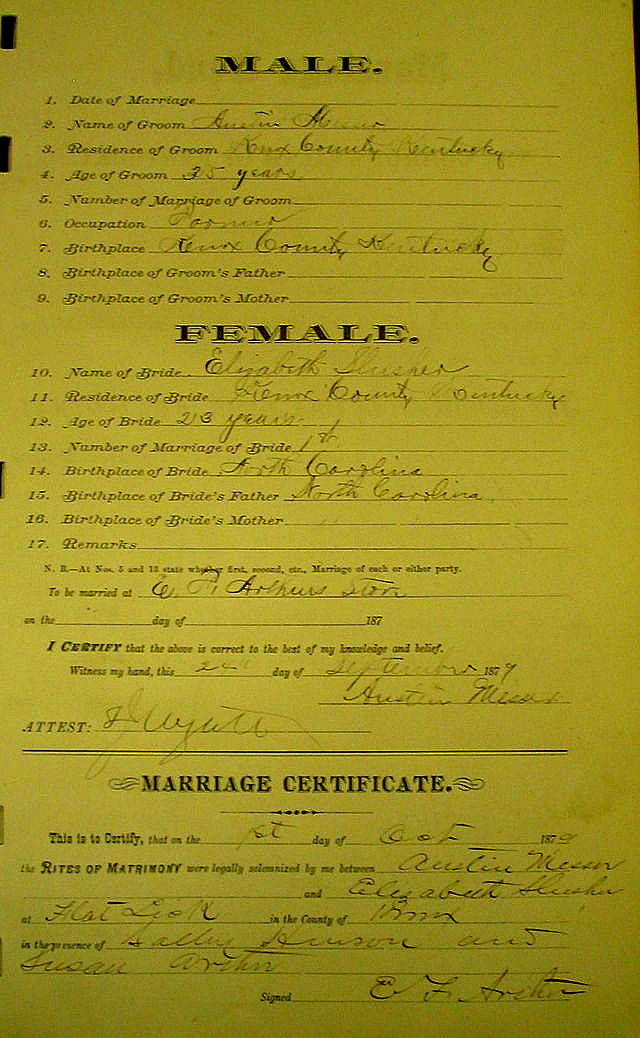 MALE.
1. Date of Marriage
2. Name of Groom Austin Messer
3. Residence of Groom Knox County Kentucky
4. Age of Groom 35 years
5. Number of Marriage of Groom
6. Occupation Farmer
7. Birthplace Knox County Kentucky
8. Birthplace of Groom's Father
9. Birthplace of Groom's Mother
FEMALE.
10. Name of Bride Elizabeth Slusher
11. Residence of Bride Knox County Kentucky
12. Age of Bride 23 years
13. Number of Marriage of Bride 1st
14. Birthplace of Bride North Carolina
15. Birthplace of Bride's Father North Carolina
16. Birthplace of Bride's Mother
17. Remarks
N. B.—At Nos. 5 and 13 state whether first, second, etc., Marriage of each or either party.
To be married at E. Arthurs Store
on the day of 187
I CERTIFY that the above is correct to the best of my knowledge and belief.
Witness my hand, this 24th day of September 1879
Austin Messer
ATTEST:
MARRIAGE CERTIFICATE.
This is to Certify, that on the 1st day of Oct 1879
the RITES OF MATRIMONY were legally solemnized by me between Austin Messer
and Elizabeth Slusher
at Flat Lick in the County of Knox
in the presence of and
Susan
Signed E